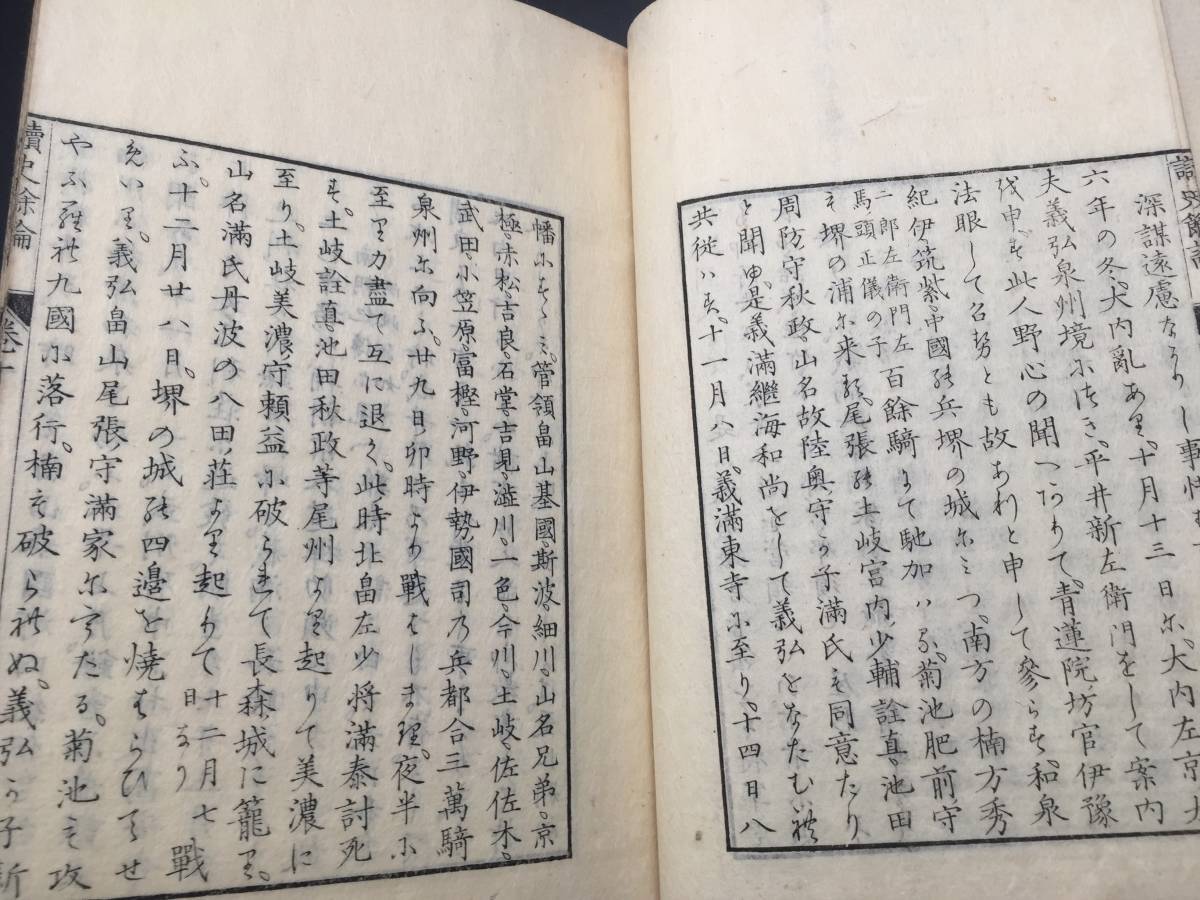 深謀遠慮なりし事
六年の冬、大内亂あり。十月十三日に、大内左京大
夫義弘泉州境につき、平井新左衛門をして案内
を申す、此人野心の聞へありて、青蓮院坊官伊豫
法眼して召せとも故ありと申して參らす、和泉
紀伊筑紫、中國の兵堺の城にみつ、南方の楠方秀
二郎左衛門左馬頭正儀の子 百餘騎にて馳加ハる、菊池肥前守
も堺の浦に来る、尾張の土岐宮内少輔詮直、池田
周防守秋政、山名故陸奥守か子滿氏も同意たり
と聞ゆ、是義滿繼海和尚をして義弘をなたむれ
共從ハす、十一月八日、義滿東寺に至り、十四日八
幡にすゝミ、管領畠山基國、斯波、細川、山名兄弟、京
極、赤松、吉良、石堂、吉見、澁川、一色、今川、土岐、佐佐木、
武田、小笠原、富樫、河野、伊勢國司乃兵都合三萬騎
泉州に向ふ、廿九日卯時より戰はしまり、夜半に
至り力盡て互に退く、此時北畠左少將滿泰討死
す、土岐詮直、池田秋政等尾州より起りて美濃に
至り、土岐美濃守頼益に破られて長森城に籠り、
山名滿氏丹波の八田、荘より起りて 十二月七日なり 戰
ふ、十二月廿八日、堺の城の四邊を燒はらひてせ
めいり、義弘畠山尾張守滿家に討たる、菊池も攻
やふられ九國に落行、楠も破られぬ、義弘か子新
讀史余論